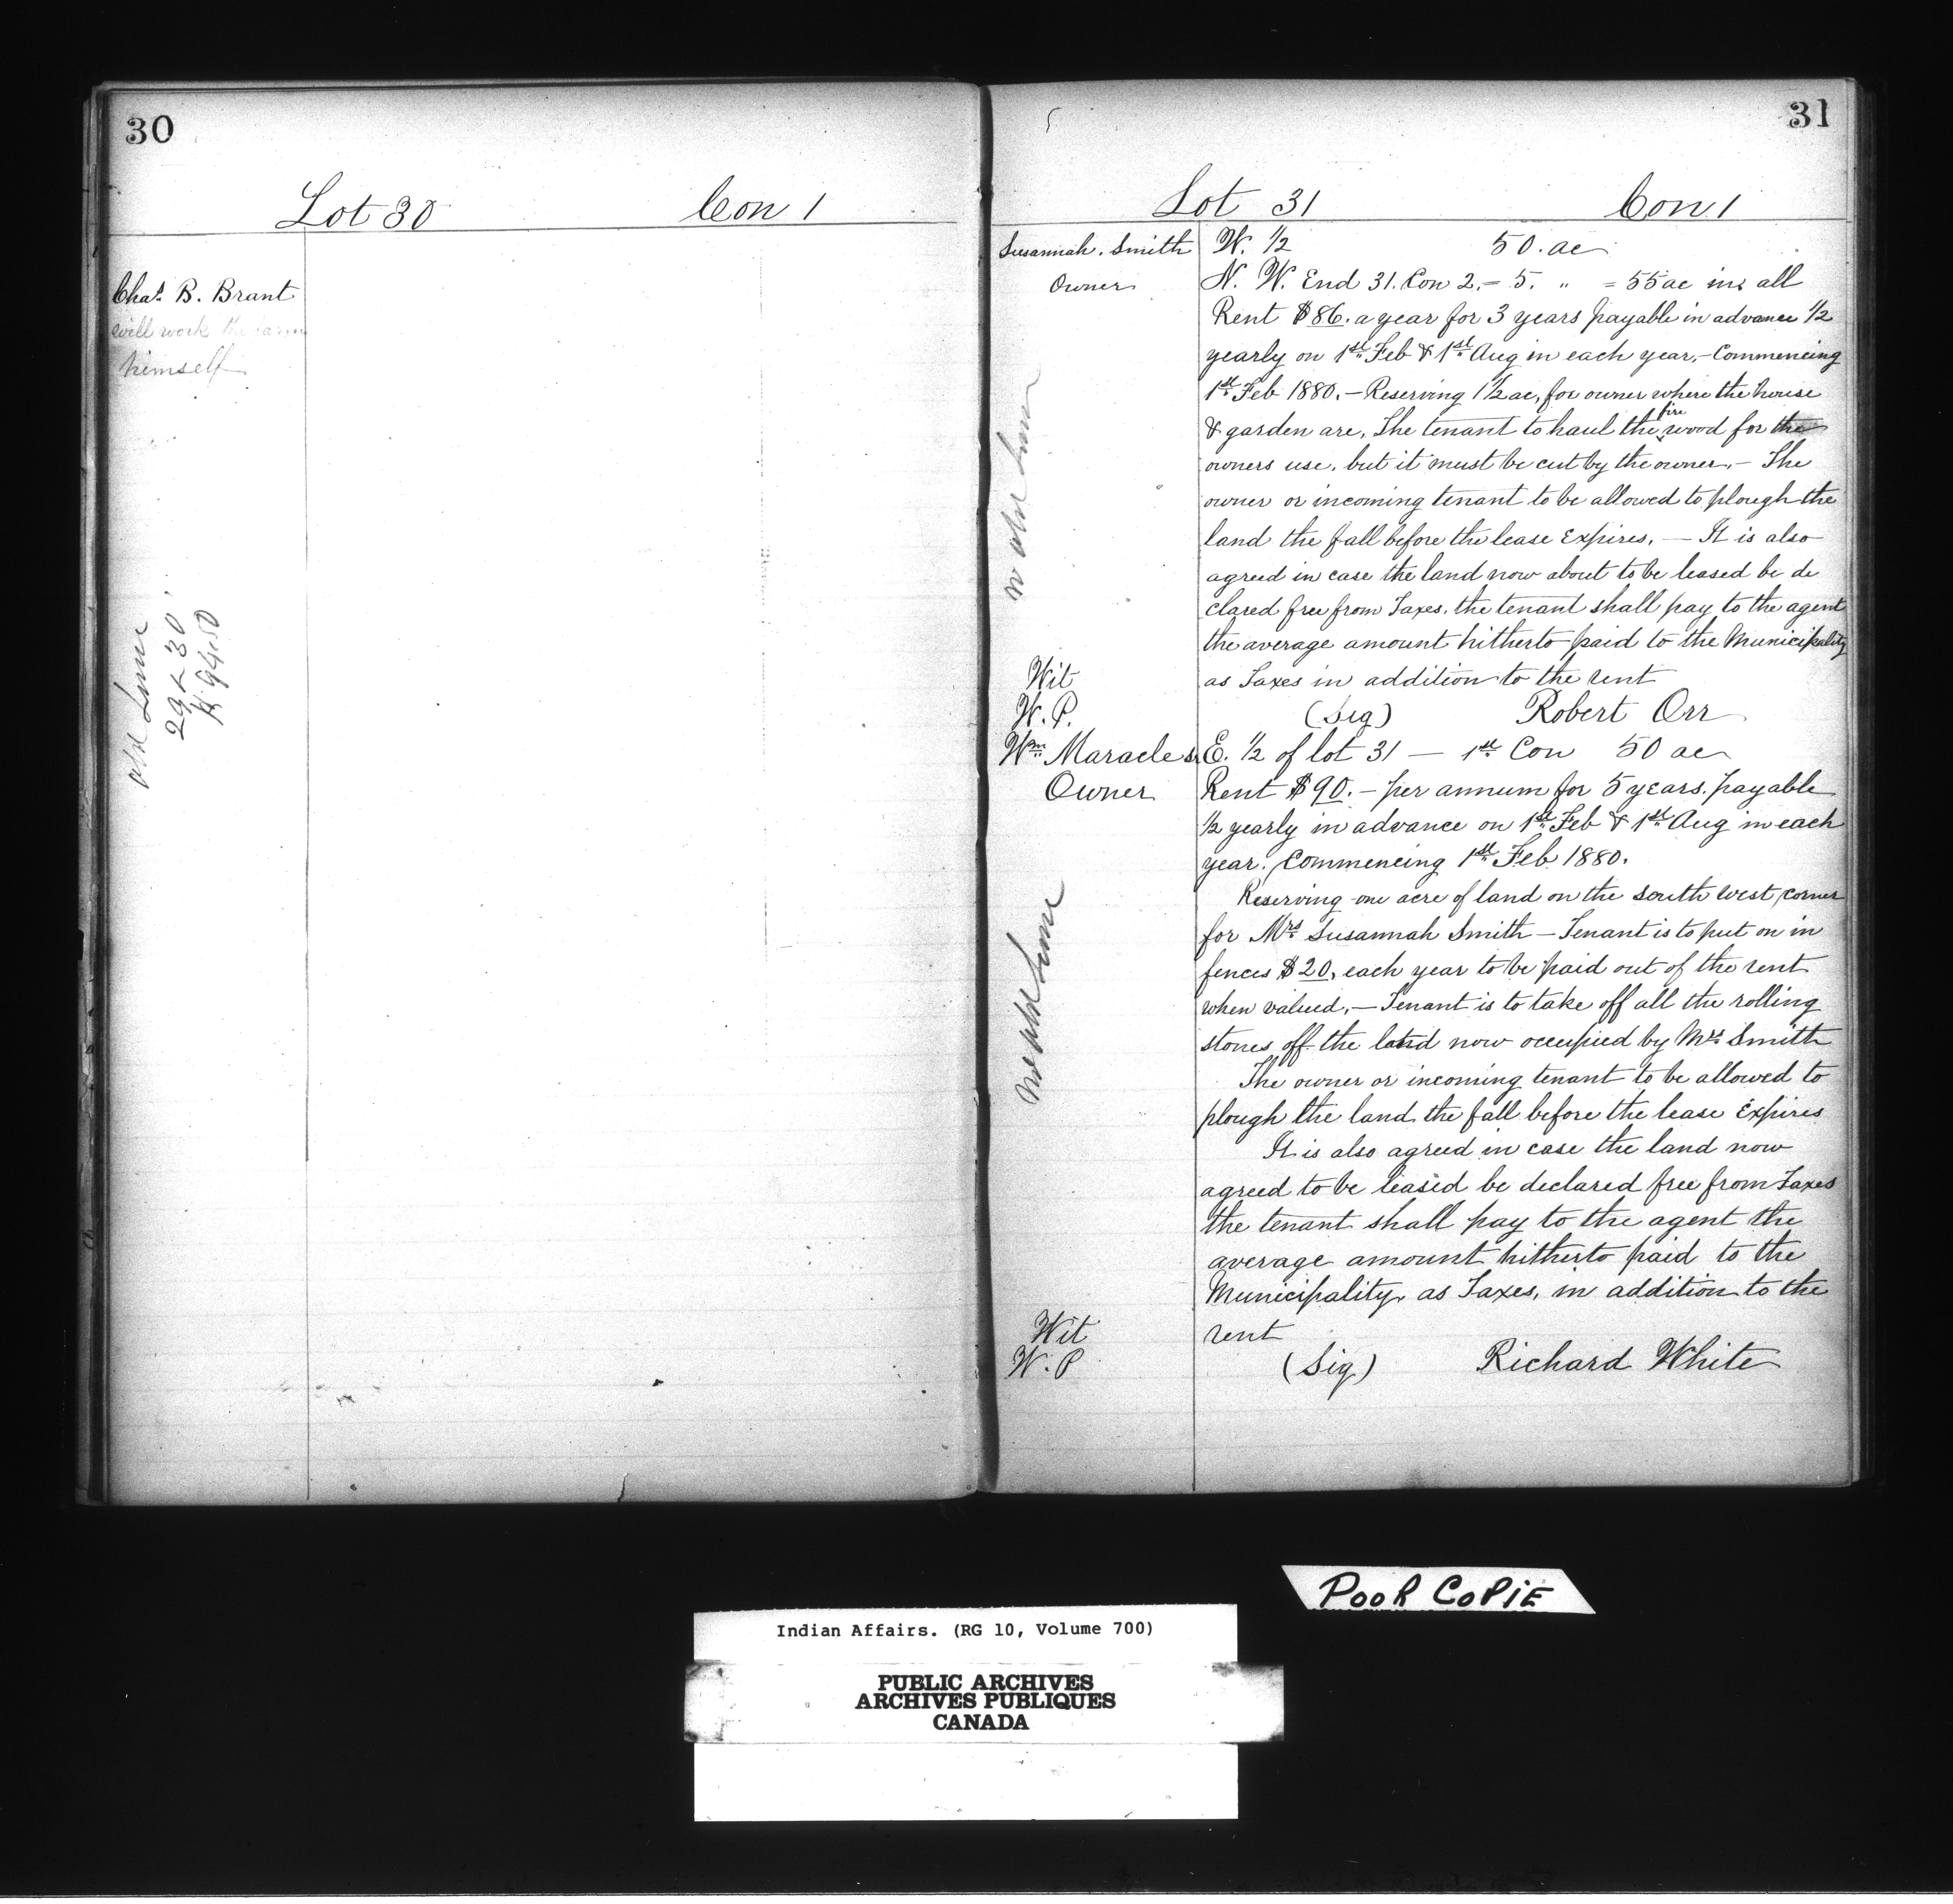 30
Lot 30 Con 1
Chas. B. Brant
will work the farm
himself
old time
29 & 30
31
Lot 31 Con 1
Susannah. Smith
Owner
W. ½ 50. ac
N. W. End 31. Con 2. = 5. " = 55 ac in all
Rent $86. a year for 3 years payable in advance ½
yearly on 1st Feb & 1st Aug in each year, - Commencing
1st Feb 1880. - Reserving 1½ ac, for owner where the house
& garden are, The tenant to haul the fire wood for the
owners use, but it must be cut by the owner, - The
owner or incoming tenant to be allowed to plough the
land the fall before the lease Expires, - It is also
agreed in case the land now about to be leased be de
clared free from Taxes, the tenant shall pay to the agent
the average amount hitherto paid to the Municipality
as Taxes in addition to the rent
Wit
W. P.
(Sig) Robert Orr
Wm Maracle
Owner
E. ½ of lot 31 - 1st Con 50 ac
Rent $90. - per annum for 5 years. payable
½ yearly in advance on 1st Feb & 1st Aug in each
year. Commencing 1st Feb 1880.
Reserving one acre of land on the South West corner
for Mrs Susannah Smith - Tenant is to put on in
fences $20, each year to be paid out of the rent
when valued, - Tenant is to take off all the rolling
stones off the land now occupied by Mrs Smith
The owner or incoming tenant to be allowed to
plough the land the fall before the lease Expires
It is also agreed in case the land now
agreed to be leased be declared free from Taxes
the tenant shall pay to the agent the
average amount hitherto paid to the
Municipality as Taxes, in addition to the
rent
Wit
W. P
(Sig) Richard White
POOR COPIE
Indian Affairs. (RG 10, Volume 700)
PUBLIC ARCHIVES
ARCHIVES PUBLIQUES
CANADA